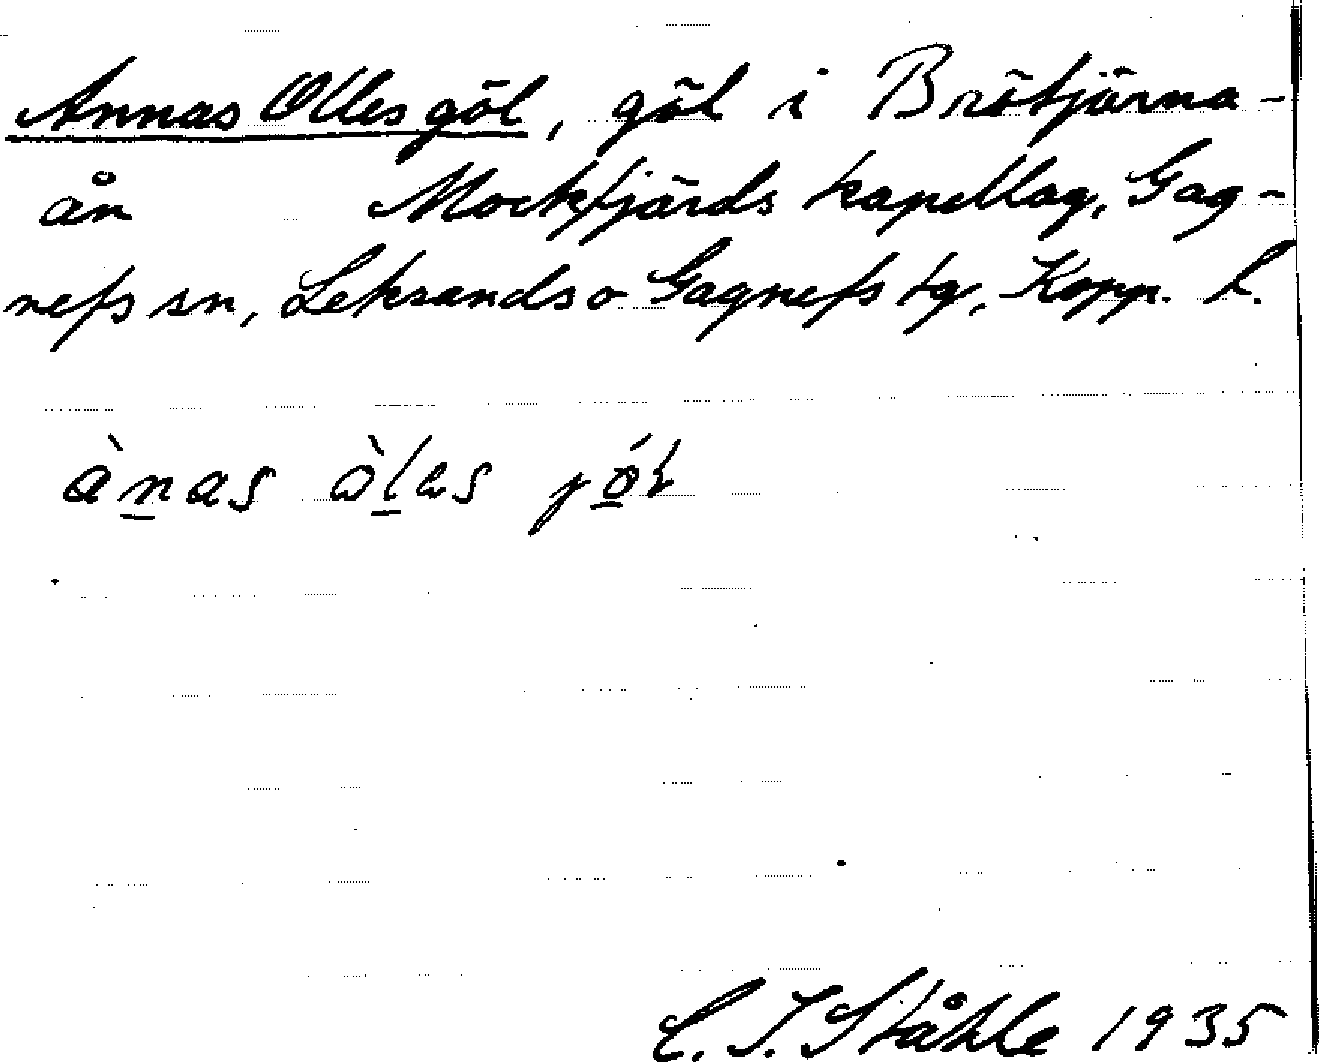 Annas Olles göl, göl i Brötjärna-
ån Mockfjärds kapellag, Gag-
nefs sn, Leksands o Gagnefs tg, Kopp. l.
ànas òles jöl
C. I. Ståhle 1935